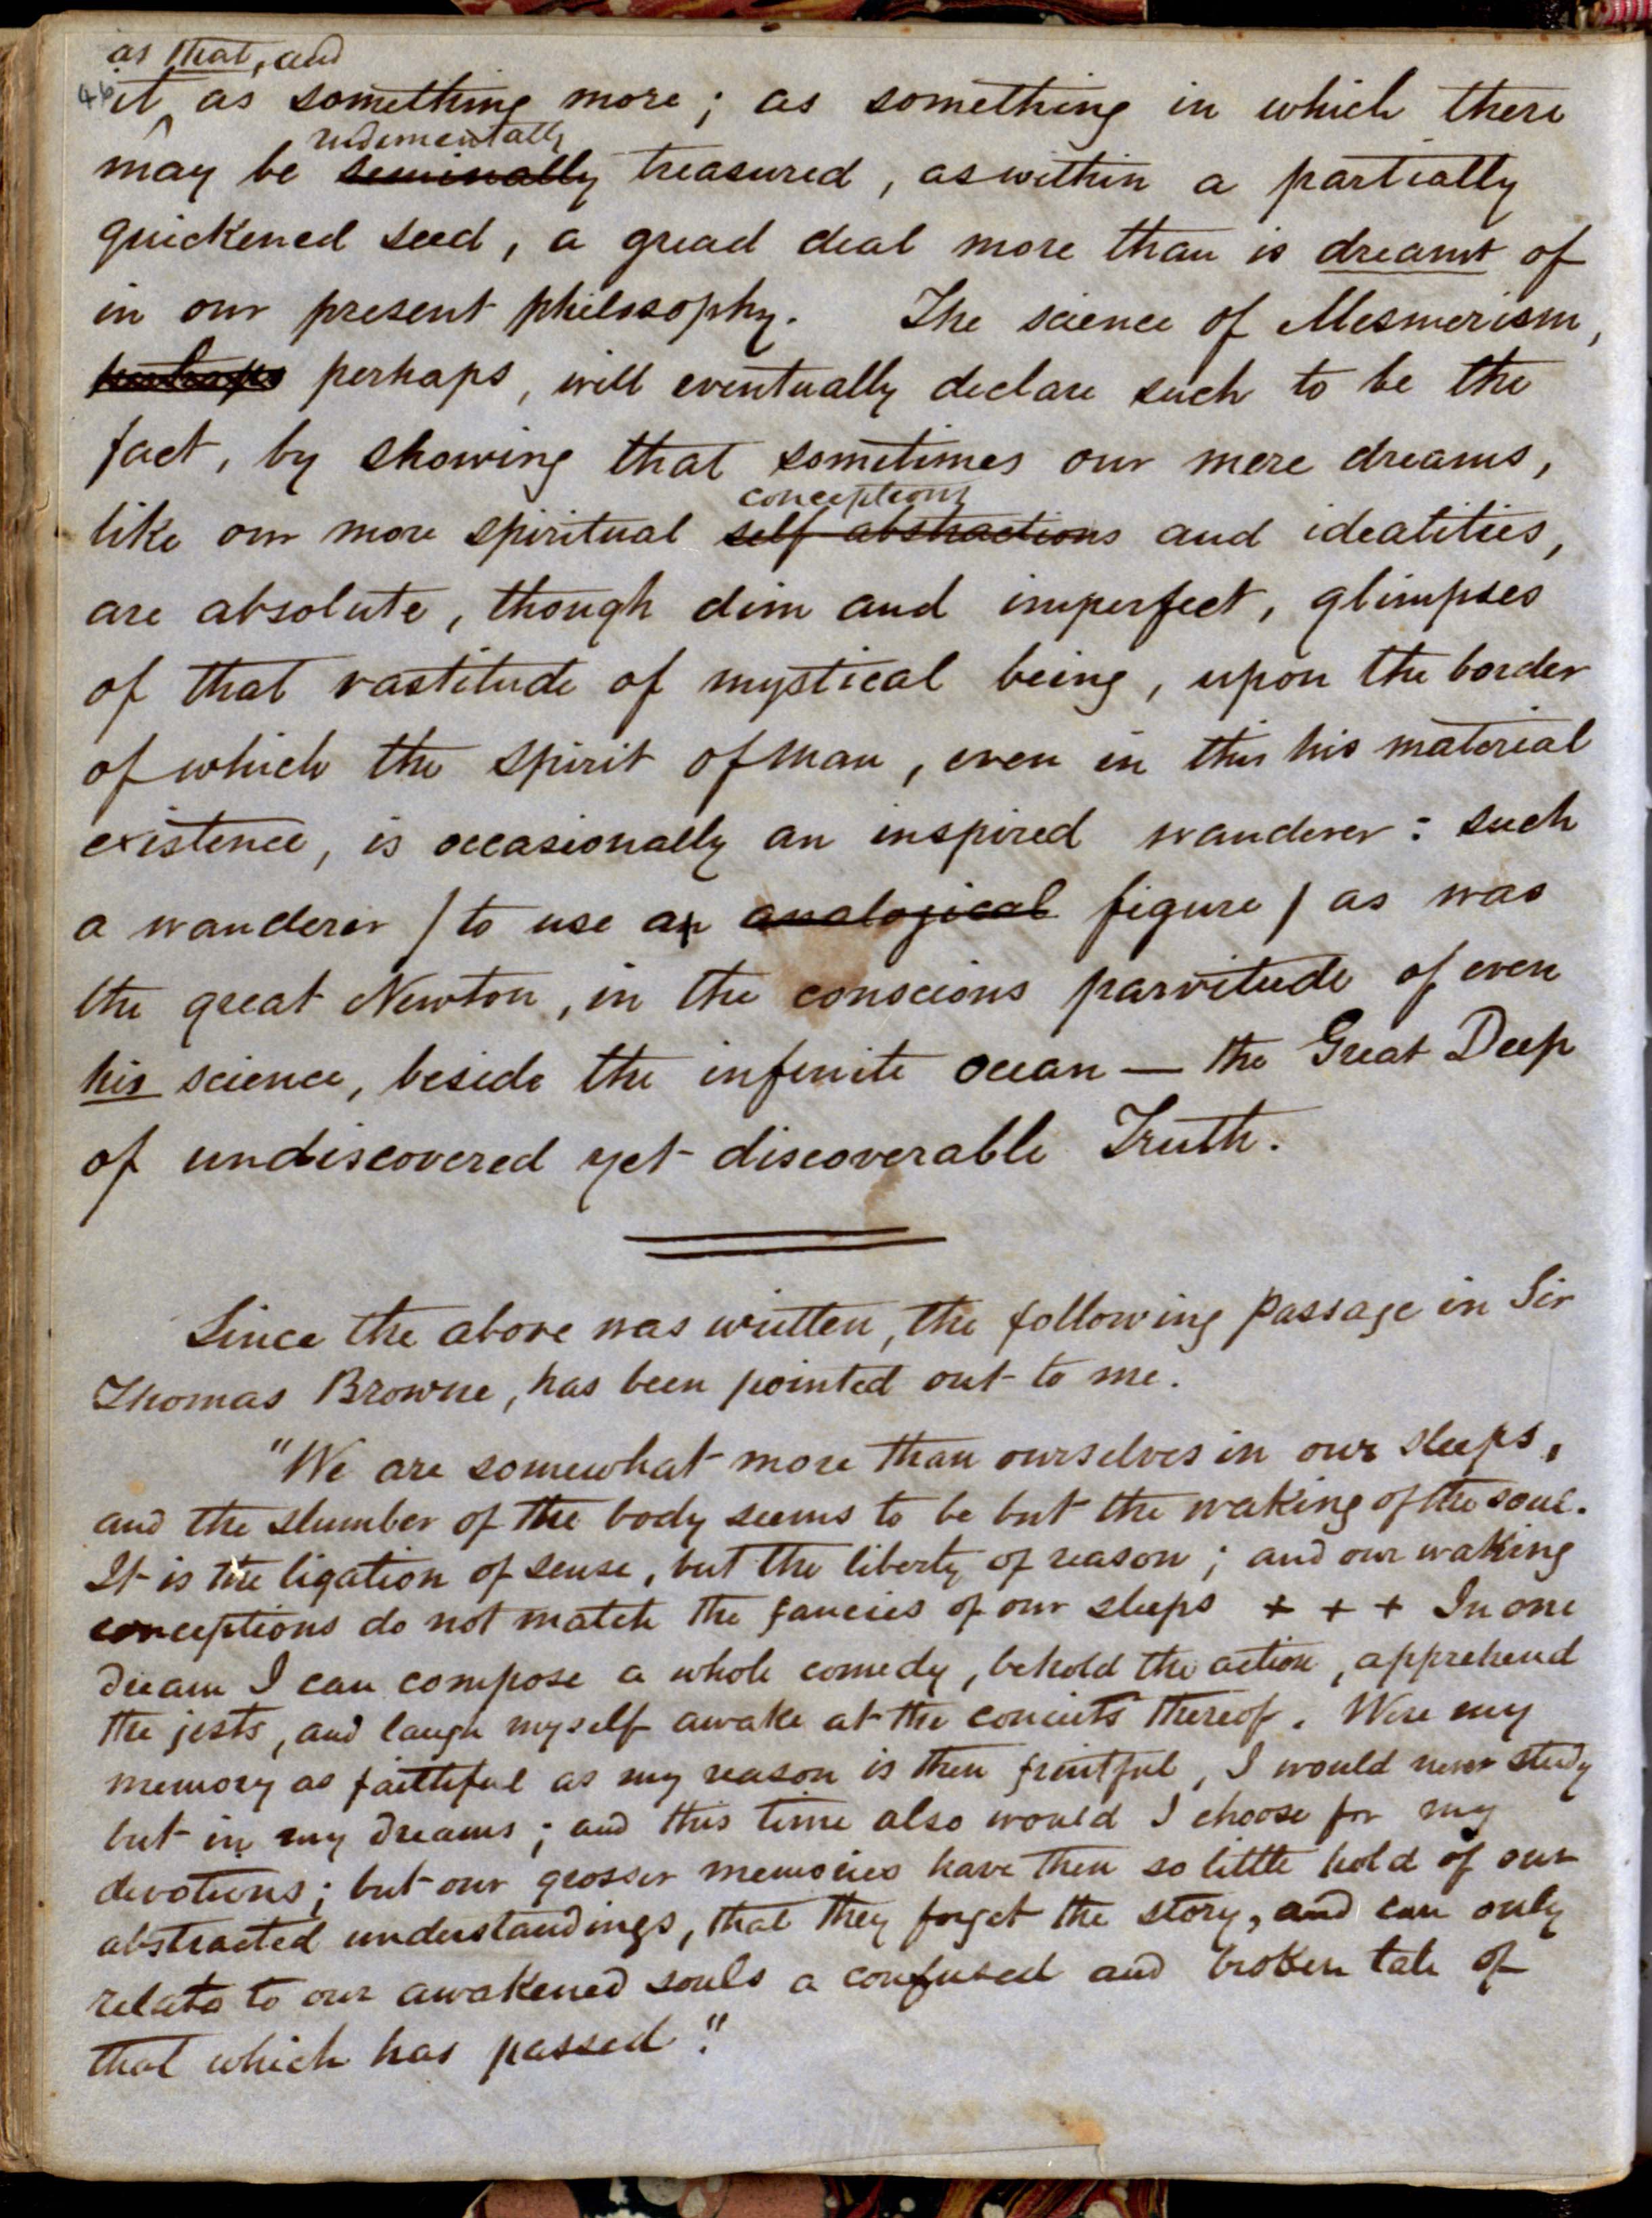 as that, and
46 it as something more; as something in which there
rudimentally
may be seminally treasured, as within a partially
quickened seed, a gread deal more than is dreamt of
in our present philosophy. The science of Mesmerism,
perhaps perhaps, will eventually declare such to be the
fact, by showing that sometimes our mere dreams,
conceptions
like our more spiritual self abstractions and idealities,
are absolute, though dim and imperfect, glimpses
of that vastitude of mystical being, upon the border
of which the spirit of man, even in this his material
existence, is occasionally an inspired wanderer: such
a wanderer / to use an analogical figure / as was
the great Newton, in the conscious parvitude of even
his science, beside the infinite ocean — the Great Deep
of undiscovered yet discoverable Truth.
Since the above was written, the following passage in Sir
Thomas Browne, has been pointed out to me.
"We are somewhat more than ourselves in our sleeps,
and the slumber of the body seems to be but the waking of the soul.
It is the ligation of sense, but the liberty of reason; and our waking
conceptions do not match the fancies of our sleeps + + + In one
dream I can compose a whole comedy, behold the action, apprehend
the jests, and laugh myself awake at the conceits thereof. Were my
memory as faithful as my reason is then fruitful, I would never study
but in my dreams; and this time also would I choose for my
devotions; but our grosser memories have then so little hold of our
abstracted understandings, that they forget the story, and can only
relate to our awakened souls a confused and broken tale of
that which has passed."